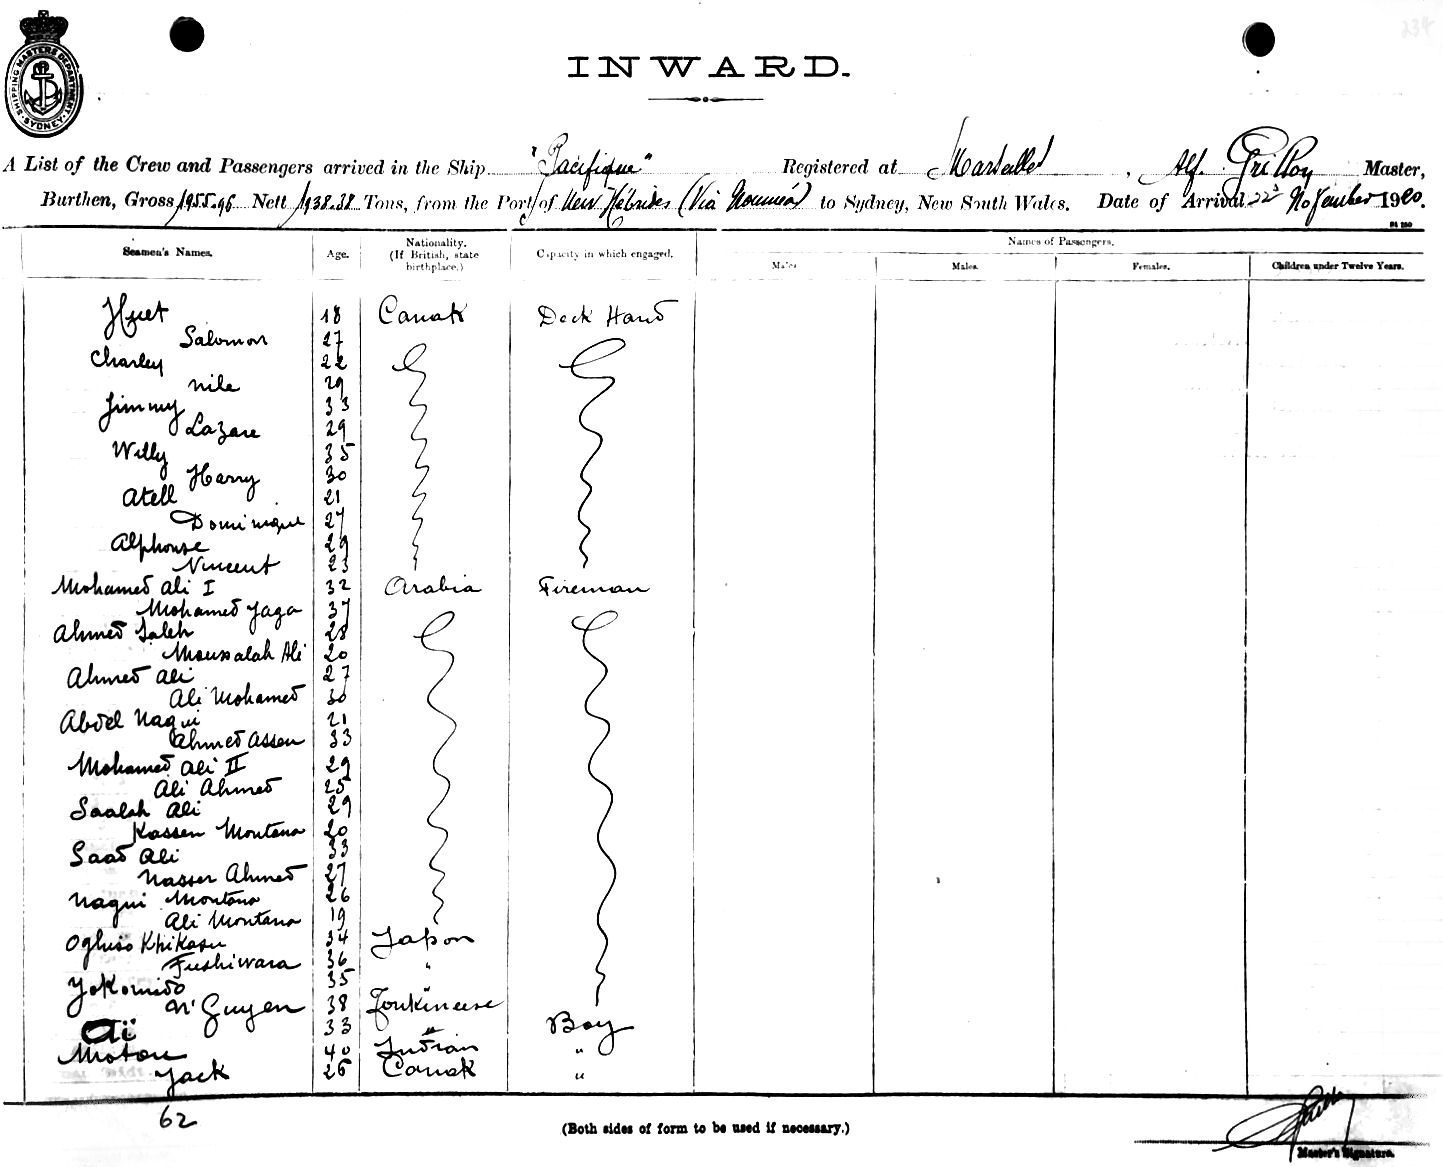 234
SHIPPING MASTERS DEPARTMENT
SYDNEY
INWARD.
A List of the Crew and Passengers arrived in the Ship "Pacifique" Registered at Marseilles, Alf. Master,
Burthen, Gross 1955.96 Nett 1938.38 Tons, from the Port of New Hebrides (Via Nouméa) to Sydney, New South Wales. Date of Arrival 22d November 1920.
Seamen's Names. Age. Nationality. (If British, state birthplace.) Capacity in which engaged. Names of Passengers.
Males Males. Females. Children under Twelve Years.
Huet 18 Canak Deck Hand
Salomon 27
Charley 22
Nile 29
Jimmy 33
Lazare 29
Willy 35
Harry 30
Atell 21
Dominique 27
Alphonse 29
Vincent 23
Mohamed Ali I 32 Arabia Fireman
Mohamed Yaga 37
Ahmed Saleh 28
Moussalah Ali 20
Ahmed Ali 27
Ali Mohamed 30
Abdel Nagui 21
Ahmed Assen 33
Mohamed Ali II 29
Ali Ahmed 25
Saalah Ali 29
Kassen Montana 20
Saad Ali 33
Nasser Ahmed 27
Nagui Montana 26
Ali Montana 19
Oghiso Khikasu 34 Japon
Fushiwara 36 "
Yokomido 35
N'Guyen 38 Tonkineese
Aï 33 " Boy
Motou 40 Indian "
Jack 26 Canak "
62
(Both sides of form to be used if necessary.)
Master's Signature.